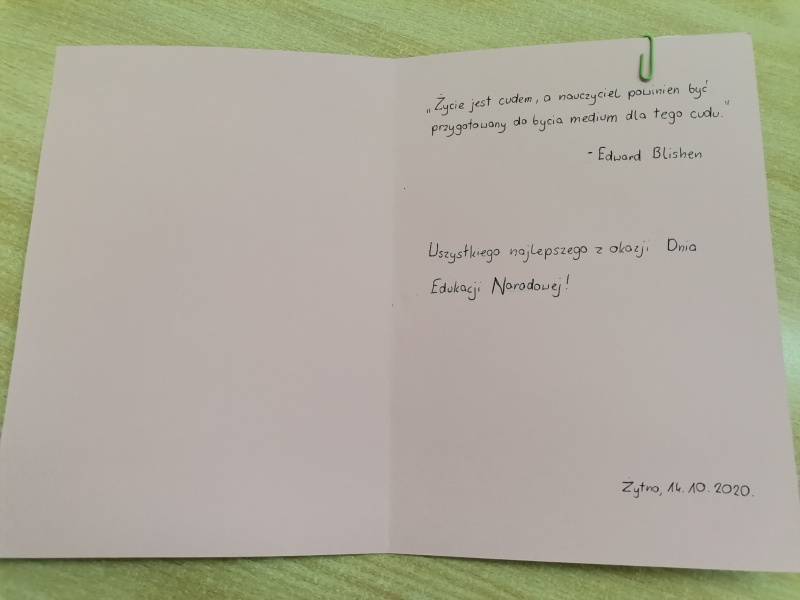 „Życie jest cudem, a nauczyciel powinien być
przygotowany do bycia medium dla tego cudu."
- Edward Blishen
Wszystkiego najlepszego z okazji Dnia
Edukacji Narodowej!
Żytno, 14.10.2020.